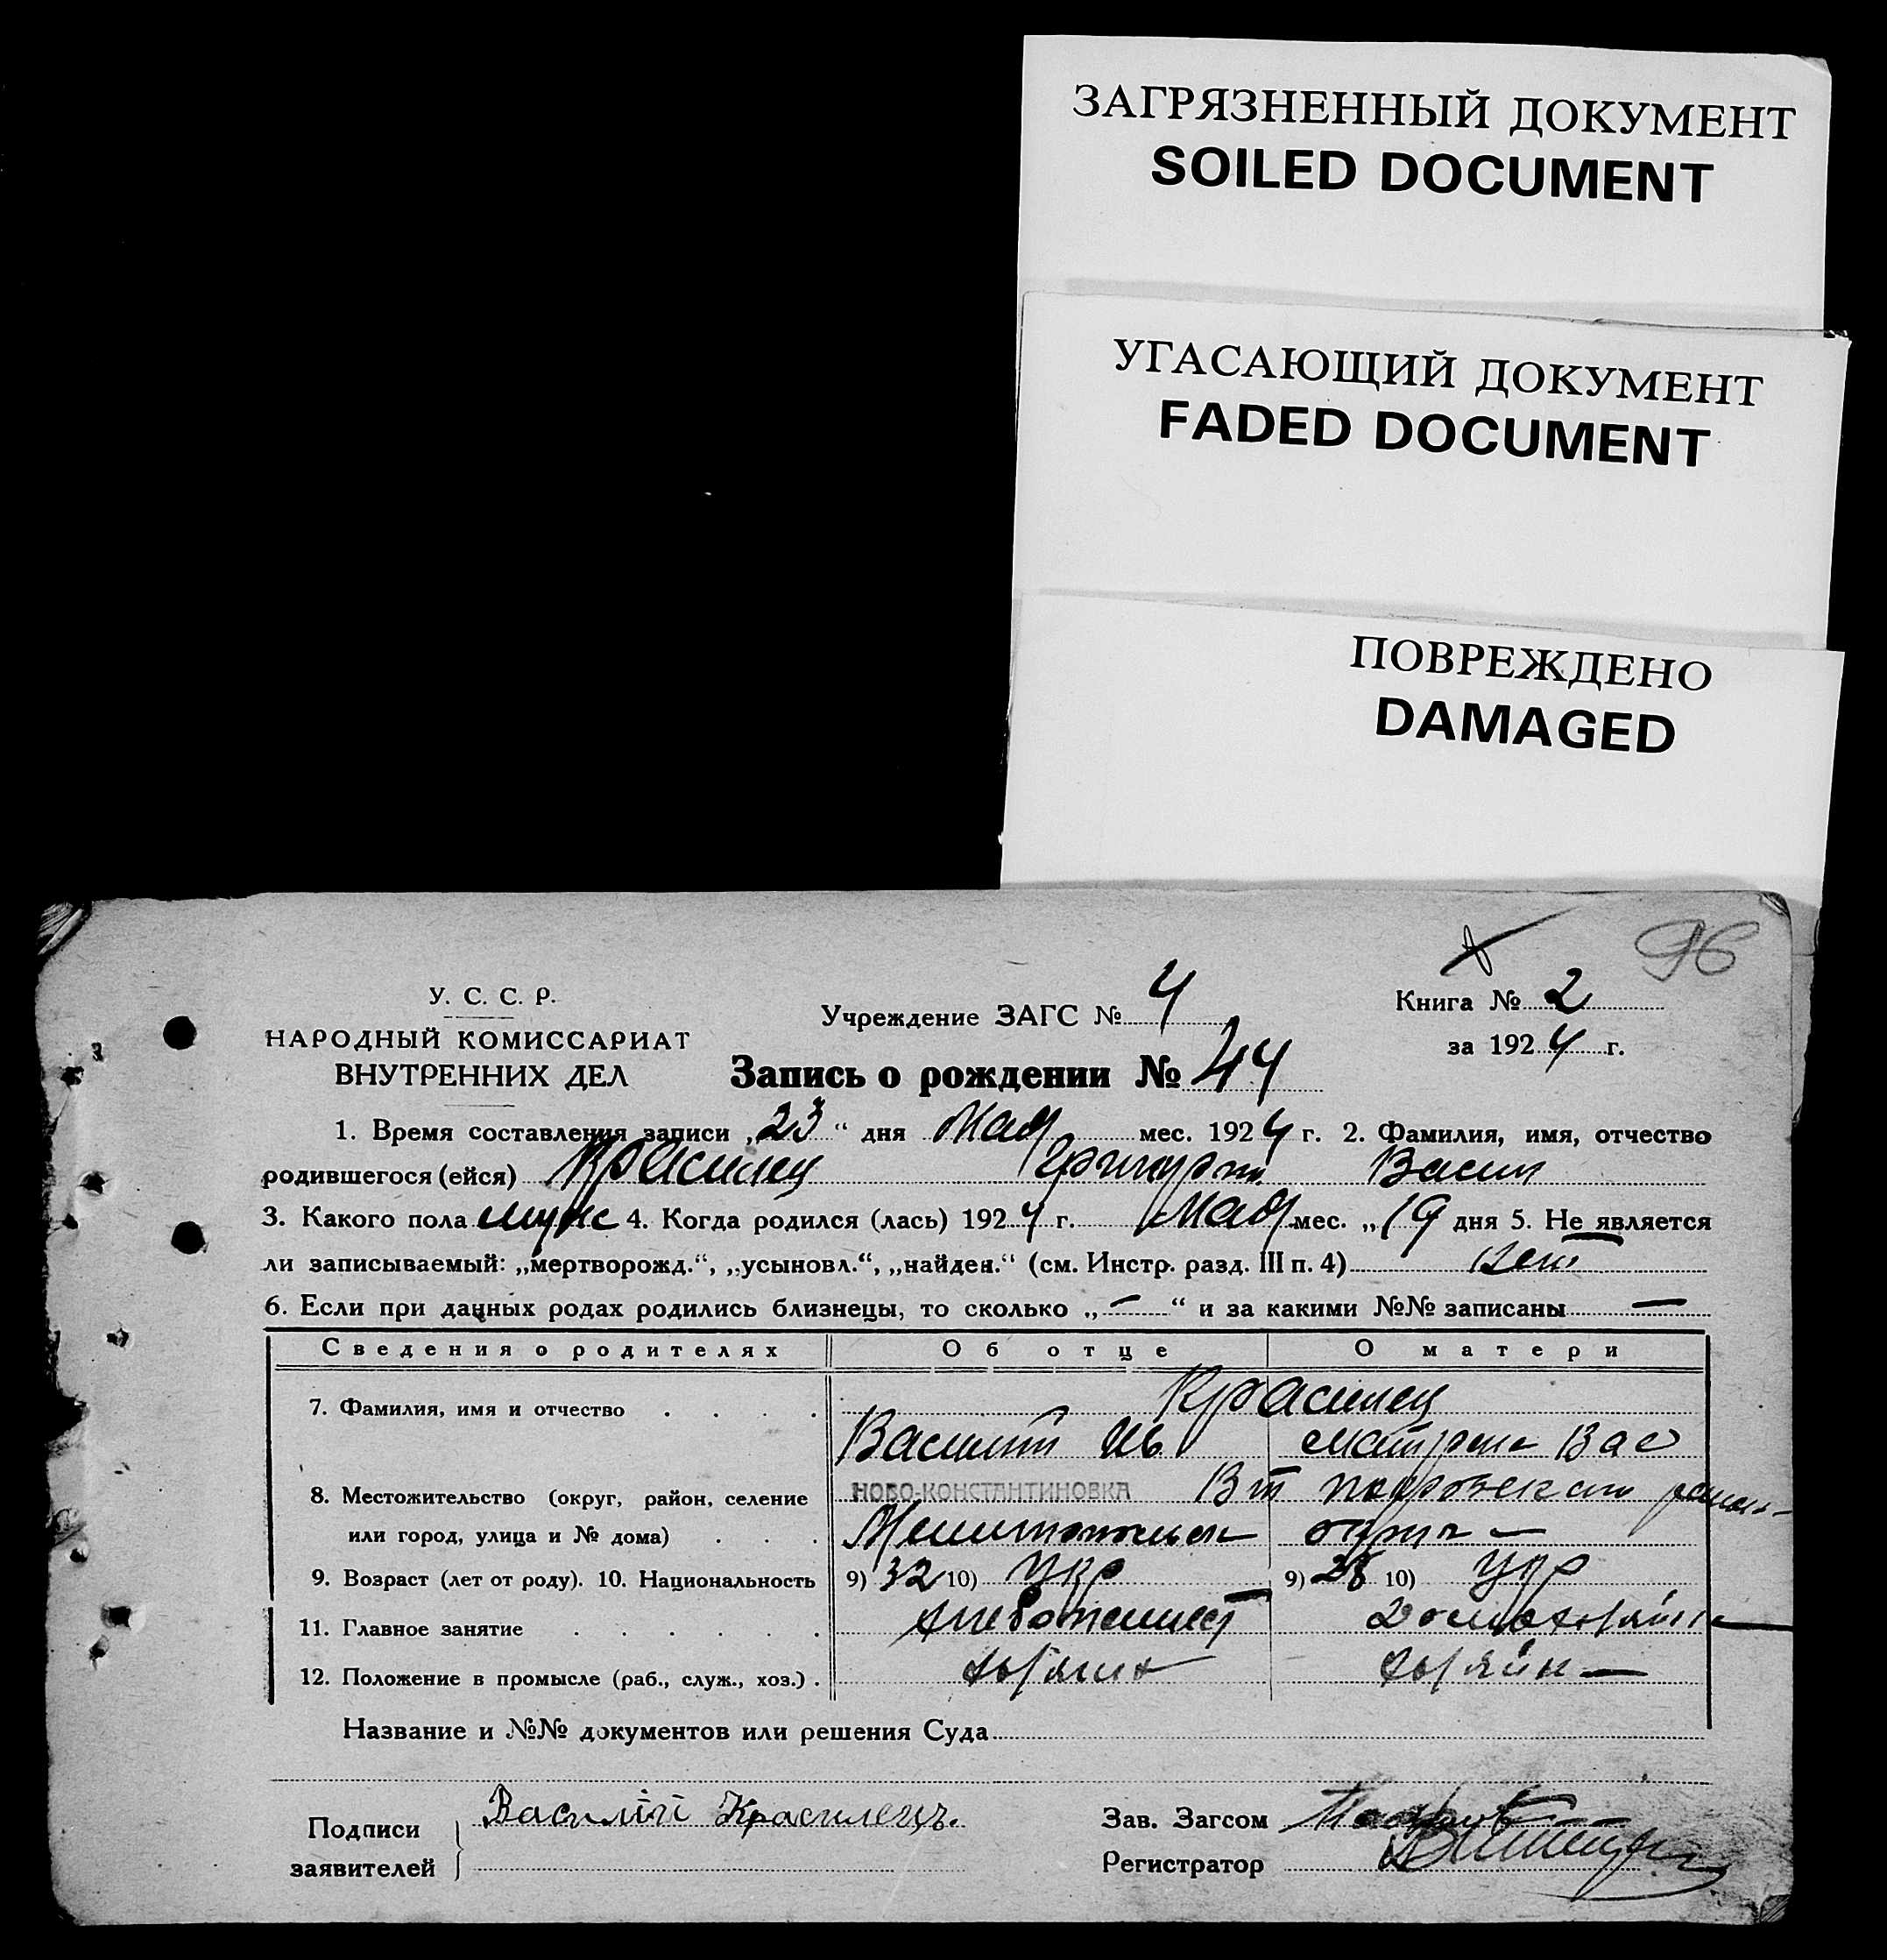 ЗАГРЯЗНЕННЫЙ ДОКУМЕНТ
SOILED DOCUMENT
УГАСАЮЩИЙ ДОКУМЕНТ
FADED DOCUMENT
ПОВРЕЖДЕНО
DAMAGED
96
У. С. С. Р.
НАРОДНЫЙ КОМИССАРИАТ
ВНУТРЕННИХ ДЕЛ
Учреждение ЗАГС № 4
Книга № 2
за 1924 г.
Запись о рождении № 44
1. Время составления записи „23“ дня Мая мес. 1924 г. 2. Фамилия, имя, отчество
родившегося (ейся) Красилец Григорий Васил
3. Какого пола муж 4. Когда родился (лась) 1924 г. Мая мес. „19 дня 5. Не является
ли записываемый: „мертворожд.“, „усыновл.“, „найден.“ (см. Инстр. разд. III п. 4)
6. Если при данных родах родились близнецы, то сколько „—“ и за какими №№ записаны —
Сведения о родителях Об отце О матери
7. Фамилия, имя и отчество Красилец
Василий Ив Матрена Вас
8. Местожительство (округ, район, селение НОВО-КОНСТАНТИНОВКА Покровского
или город, улица и № дома) Мелитопольск округа
9. Возраст (лет от роду). 10. Национальность 9) 32 10) Укр 9) 28 10) Укр
11. Главное занятие хлебопашест домохозяйк
12. Положение в промысле (раб., служ., хоз.) хозяин хозяйк
Название и №№ документов или решения Суда
Подписи
заявителей
Василий Красилецъ.
Зав. Загсом
Регистратор